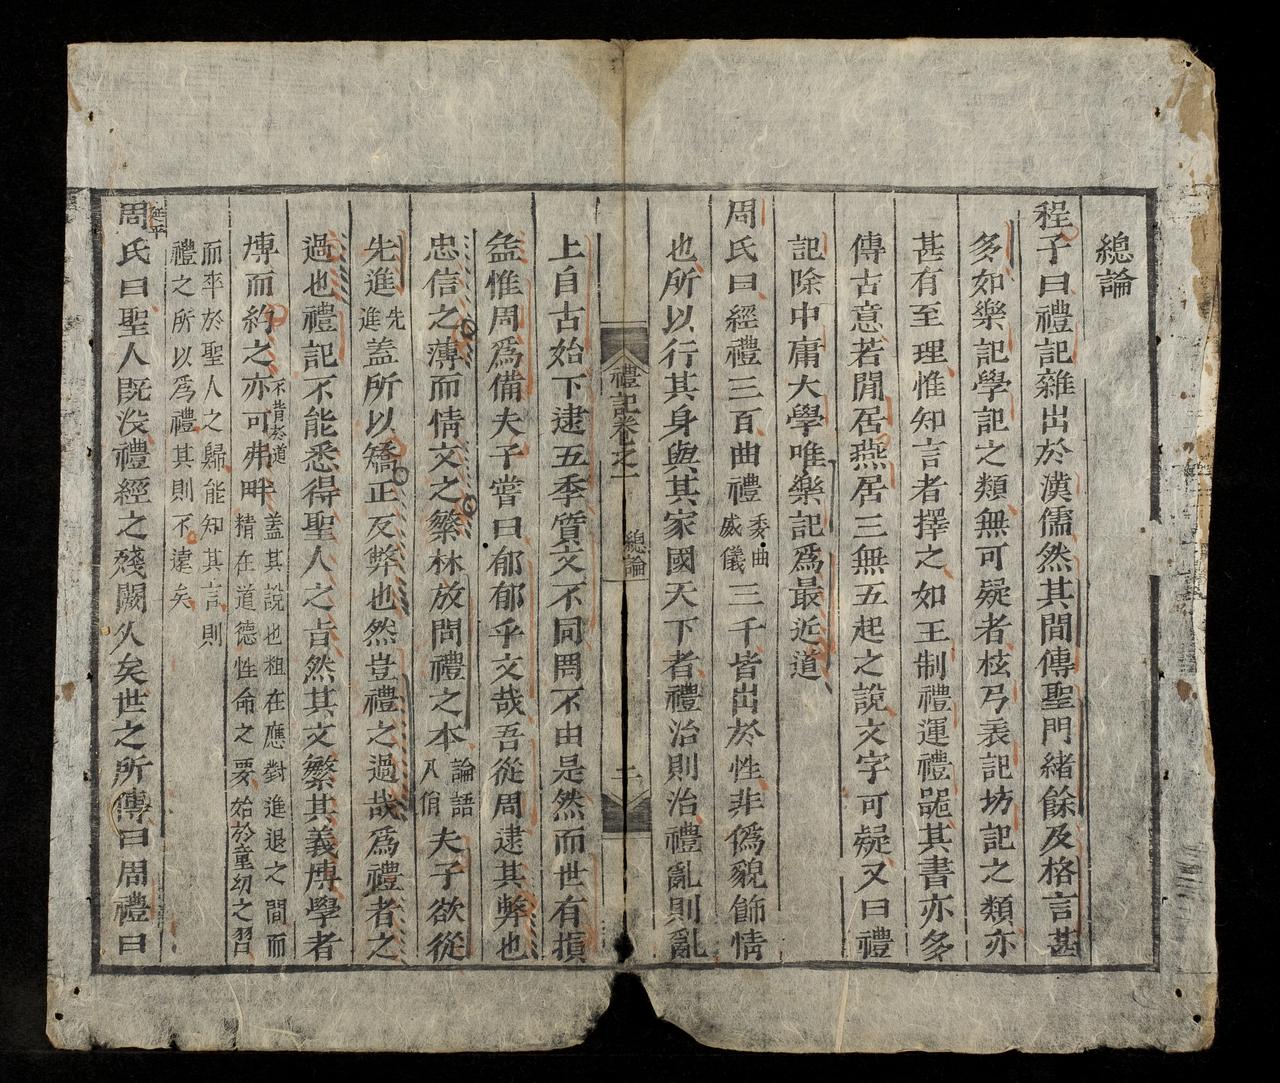 總論
程子曰禮記雜出於漢儒然其間傳聖門緒餘及格言甚
多如樂記學記之類無可疑者檀弓表記坊記之類亦
甚有至理惟知言者擇之如王制禮運禮器其書亦多
傳古意若閒居燕居三無五起之說文字可疑又曰禮
記除中庸大學唯樂記爲最近道
周氏曰經禮三百曲禮委曲威儀三千皆出於性非僞貌飾情
也所以行其身與其家國天下者禮治則治禮亂則亂
禮記卷之一
總論
二
上自古始下逮五季質文不同罔不由是然而世有損
益惟周爲備夫子嘗曰郁郁乎文哉吾從周逮其弊也
忠信之薄而情文之繁林放問禮之本論語八佾夫子欲從
先進先進蓋所以矯正反弊也然豈禮之過哉爲禮者之
過也禮記不能悉得聖人之旨然其文繁其義博學者
博而約之亦可弗畔不背於道蓋其說也粗在應對進退之間而精在道德性命之要始於童幼之習
而卒於聖人之歸能知其言則
禮之所以爲禮其則不遠矣
延平
周氏曰聖人既沒禮經之殘闕久矣世之所傳曰周禮曰